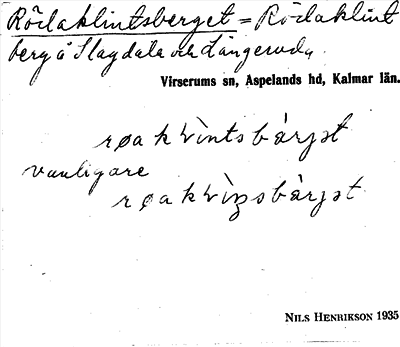 Rödaklintsberget = Rödaklint
berg å Slagdala och Långeruda
Virserums sn, Aspelands hd, Kalmar län.
røakλìntsbàrjət
vanligare
røakλìn̥sbàrjət
NILS HENRIKSON 1935